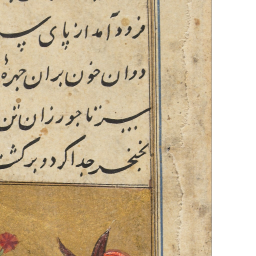 فرود آمد از پای
دوان خون بران چهرهٔ
ناجور زان تن
بخنجر جدا کرد و برگشت